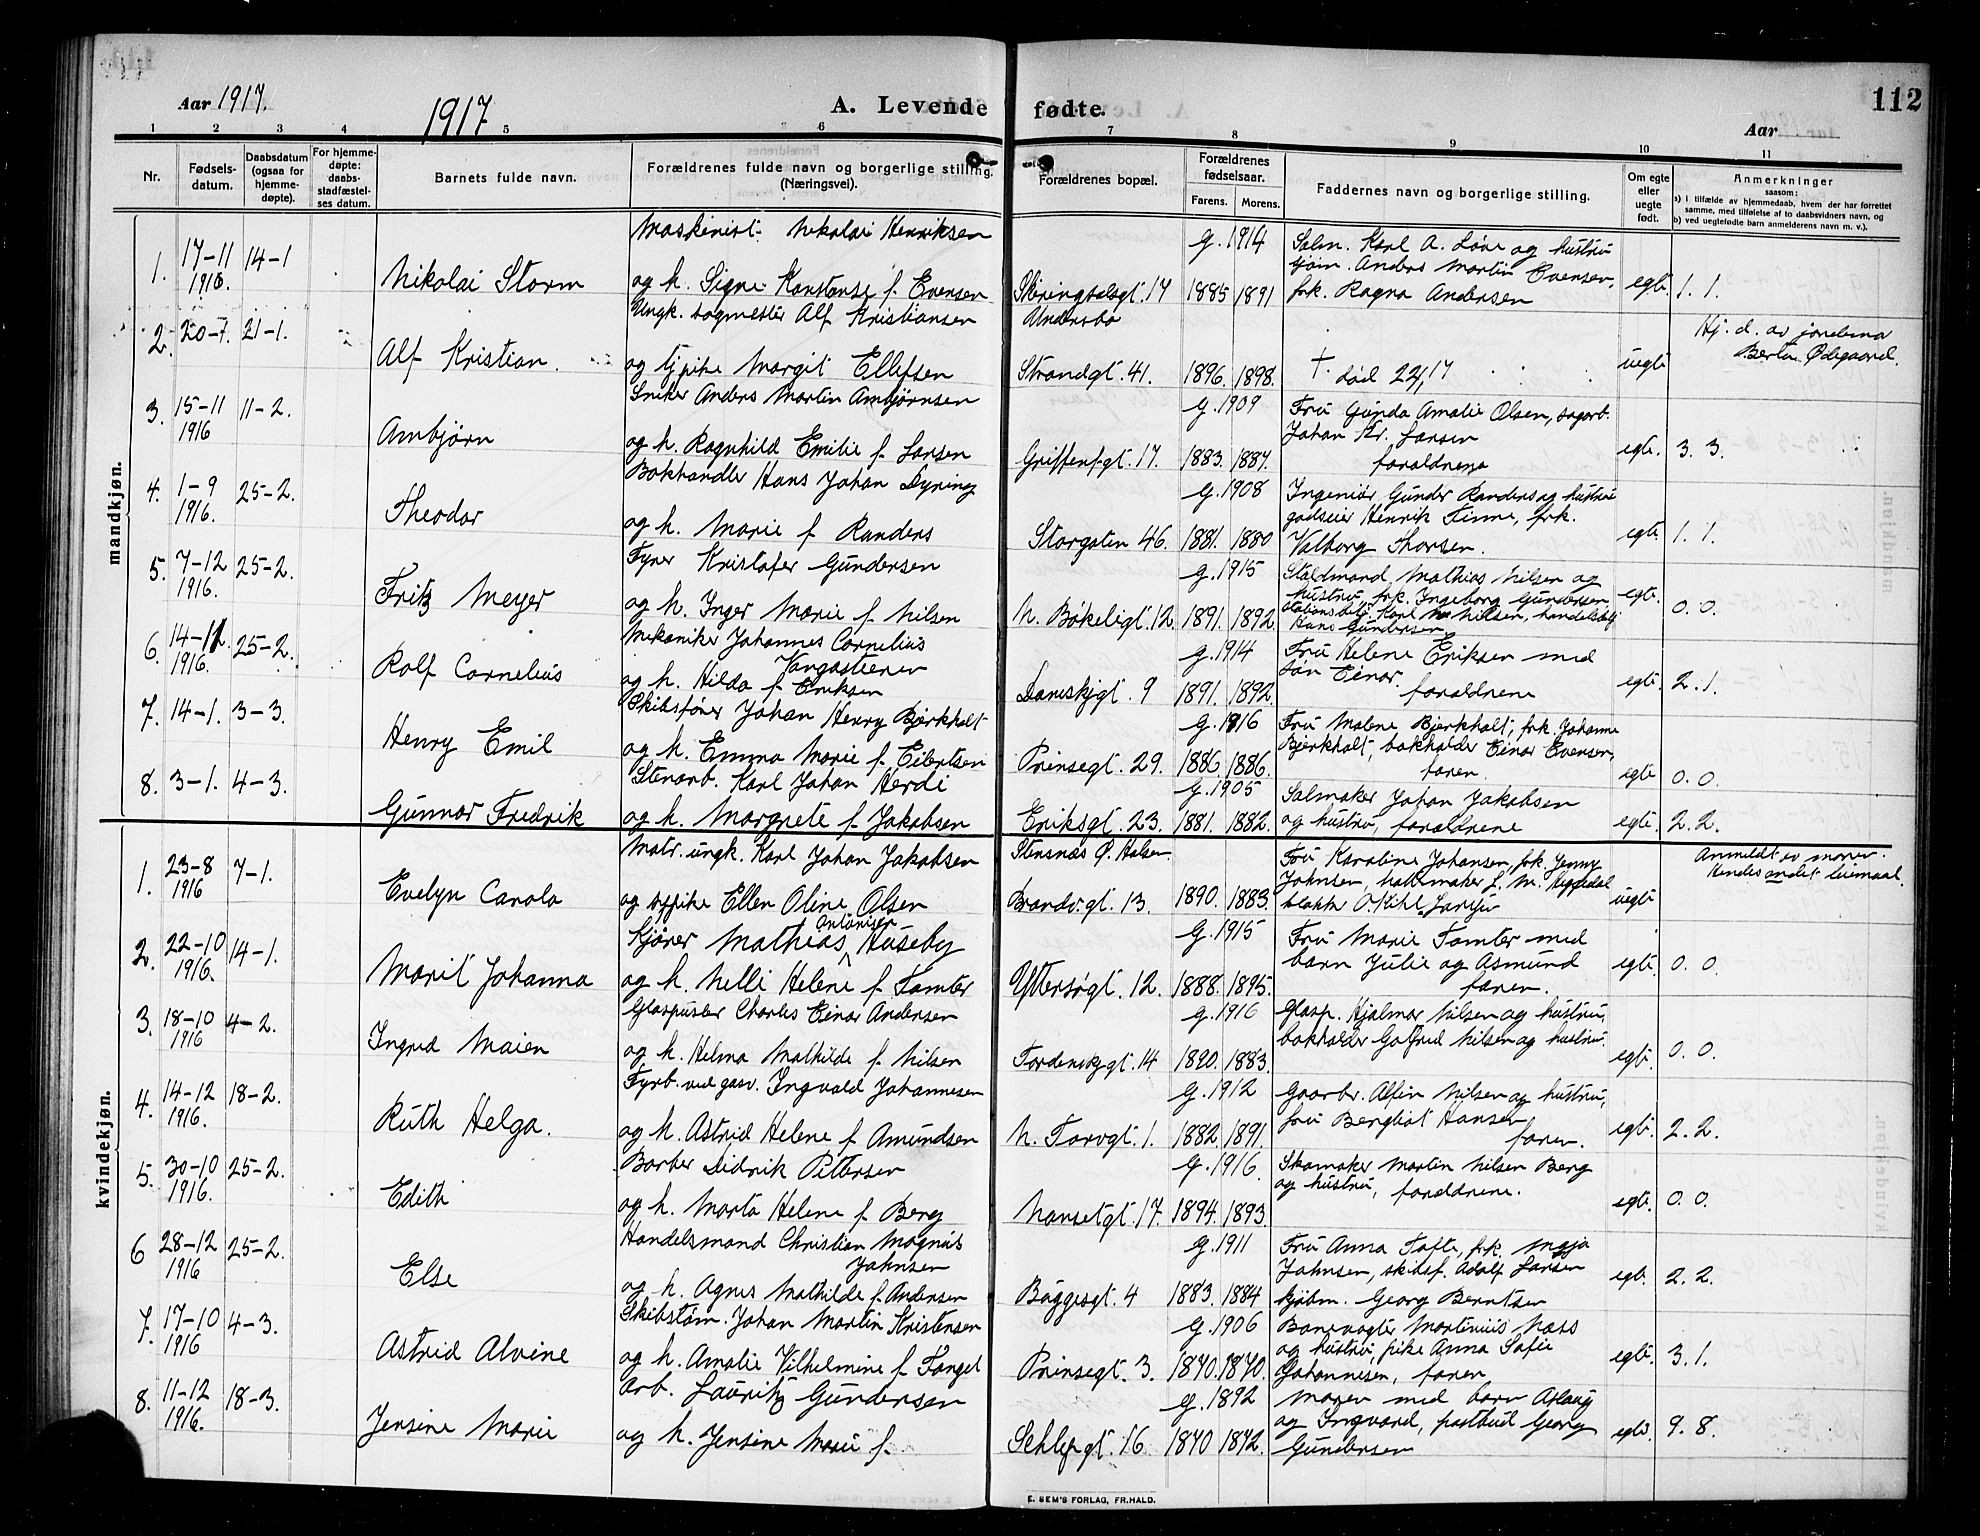 Aar 1917.
1917
A. Levende fødte.
Aar
112
1 2 3 4 5 6 7 8 9 10 11
Nr.
Fødsels-
datum.
Daabsdatum
(ogsaa for
hjemme-
døpte).
For hjemme-
døpte:
daabs-
stadfæstel-
ses datum.
Barnets fulde navn.
Forældrenes fulde navn og borgerlige stilling.
(Næringsvei).
Forældrenes bopæl.
Forældrenes
fødselsaar.
Farens. Morens.
Faddernes navn og borgerlige stilling.
Om egte
eller
uegte
født.
Anmerkninger
saasom:
a) i tilfælde av hjemmedaab, hvem der har forrettet
samme, med tilføielse af to daabsvidners navn, og
b) ved uegtefødte barn anmelderens navn m. v.).
mandkjøn.
Maskinist Nikolai Henriksen
g. 1914
Salm. Karl A. Løve og hustru
1. 17-11 1916. 14-1 Nikolai Storm og h. Signe Konstanse f. Evensen
Skiringsalsgt. 17 1885 1891
Anders Martin Evensen,
frk. Ragna Andersen
egte. 1. 1.
Ungk. bogmester Alf Kristiansen
Hj. d. av jordema
Berta Ødegaard.
2. 20-7. 21-1. Alf Kristian. og Margit Ellefsen
Strandgt. 41. 1896. 1898. † død uegte
Sniker Anders Martin Ambjørnsen
g. 1909
Fru Gunda Amalie Olsen,
Johan Kr. Larsen
forældrene
3. 15-11 1916 11-2. Ambjørn og h. Ragnhild Emilie f. Larsen
Griffenf.gt. 17. 1883. 1887. egte. 3. 3.
Bokhandler Hans Johan Dyring
g. 1908
Ingeniør Gunder Randers og hustru
godseier Henrik Finne, frk.
Valborg Thorsen.
4. 1-9 1916. 25-2. Theodor og h. Marie f. Randers
Storgaten 46. 1881. 1880 egte. 1. 1.
Fyrer Kristofer Gundersen
g. 1915
Staldmand Mathias Nilsen og
hustru, frk. Ingeborg Gundersen
Karl Nilsen,
Hans Gundersen
5. 7-12 1916. 25-2. Fritz Meyer og h. Inger Marie f. Nilsen
N. Bökeligt. 12. 1891. 1892. egte. 0. 0.
Mekaniker Johannes Cornelius
g. 1914
Fru Helene Eriksen med
søn Einar. forældrene
6. 1916. 25-2. Rolf Cornelius og h. Hilda f. Eriksen
9 1891. 1892. egte. 2. 1.
Skibsfører Johan Henry Bjerkholt
g. 1916
Fru Malene Bjerkholt, frk. Johanne
Bjerkholt, bokholder Einar Evensen,
faren.
7. 14-1. 3-3. Henry Emil og h. Emma Marie f. Eilertsen
Prinsegt. 29. 1886. 1886. egte 0. 0.
Stenarb. Karl Johan Herdi
g. 1905
Salmaker Johan Jakobsen
og hustru, forældrene
8. 3-1. 4-3. Gunnar Fredrik og h. Margrete f. Jakobsen
Eriksgt. 23. 1881. 1882. egte. 2. 2.
kvindekjøn.
Matr. ungk. Karl Johan Jakobsen
Stensnæs Ø. Halsen.
Fru Karoline Johansen, frk. Jenny
Johnsen,
Anmeldt av moren.
Hendes andet leiermaal.
1. 23-8 1916 7-1. Evelyn Carola og pike Ellen Oline Olsen
Brandv.gt. 13. 1890. 1883. uegte
Kjører Mathias Antonisen Huseby
g. 1915
Fru Marie Tamter med
barn Julie og Asmund
faren.
2. 22-10 1916. 14-1. Marit Johanna og h. Nelli Helene f. Tamter
Yttersøgt. 12. 1888. 1895. egte. 0. 0.
Glaspuster Charles Einar Andersen
g. 1916
Glasp. Hjalmar Nilsen og hustru,
bokholder Gotfred Nilsen og hustru.
3. 18-10 1916 4-2. Ingrid Maien og h. Helma Mathilde f. Nilsen
Tordenskj.gt. 14 1890. 1883. egte. 0. 0.
Fyrb. ved gasv. Ingvald Johannesen
g. 1912
Alfin Nilsen og hustru,
fru Bergliot Hansen
faren.
4. 14-12 1916. 18-2. Ruth Helga. og h. Astrid Helene f. Amundsen
N. Torvgt. 1. 1882. 1891. egte. 2. 2.
Barber Didrik Pettersen
g. 1916.
Skomaker Martin Nilsen Berg
og hustru, forældrene.
5. 30-10 1916. 25-2. Edith og h. Marta Helene f. Berg
Nansetgt. 17. 1894. 1893. egte. 0. 0.
Handelsmand Christian Magnus
Johnsen
g. 1911
Fru Anna Tofte, frk. Maja
Johnsen, skibsf. Adolf Larsen
kjøbm. Georg Berntsen
6 28-12 1916 25-2. Else og h. Agnes Mathilde f. Andersen
Büggesgt. 4 1883. 1884 egte. 2. 2.
Skibstøm. Johan Martin Kristensen
g. 1906
Banevogter Martinius Næss
og hustru, pike Anna Sofie
Johannesen, faren
7. 17-10 1916 4-3. Astrid Alvine og h. Amalie Vilhelmine f. Tanget
Prinsegt. 3. 1870. 1870. egte. 3. 1.
Arb. Lauritz Gundersen
g. 1892
Moren med barn Aslaug
og Ingvard, postbud Georg
Gundersen
8. 11-12 1916. 18-3. Jensine Marie og h. Jensine Marie f.
16. 1870 1872. egte. 9. 8.
E. SEM'S FORLAG, FR.HALD.